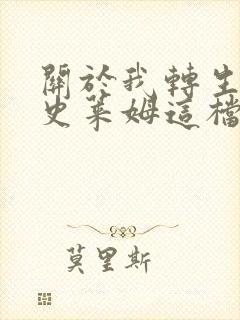 關於我轉生
史萊姆這檔
莫里斯